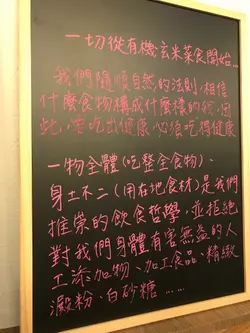 一切從有機玄米菜食開始...
我們隨順自然的法則，相信
什麼食物構成什麼樣的你，因
此，想吃出健康，必須吃得健康
一物全體（吃整全食物）、
身土不二（用在地食材）是我們
推崇的飲食哲學，並拒絕
對我們身體有害無益的人
工添加物、加工食品、精緻
澱粉、白砂糖……